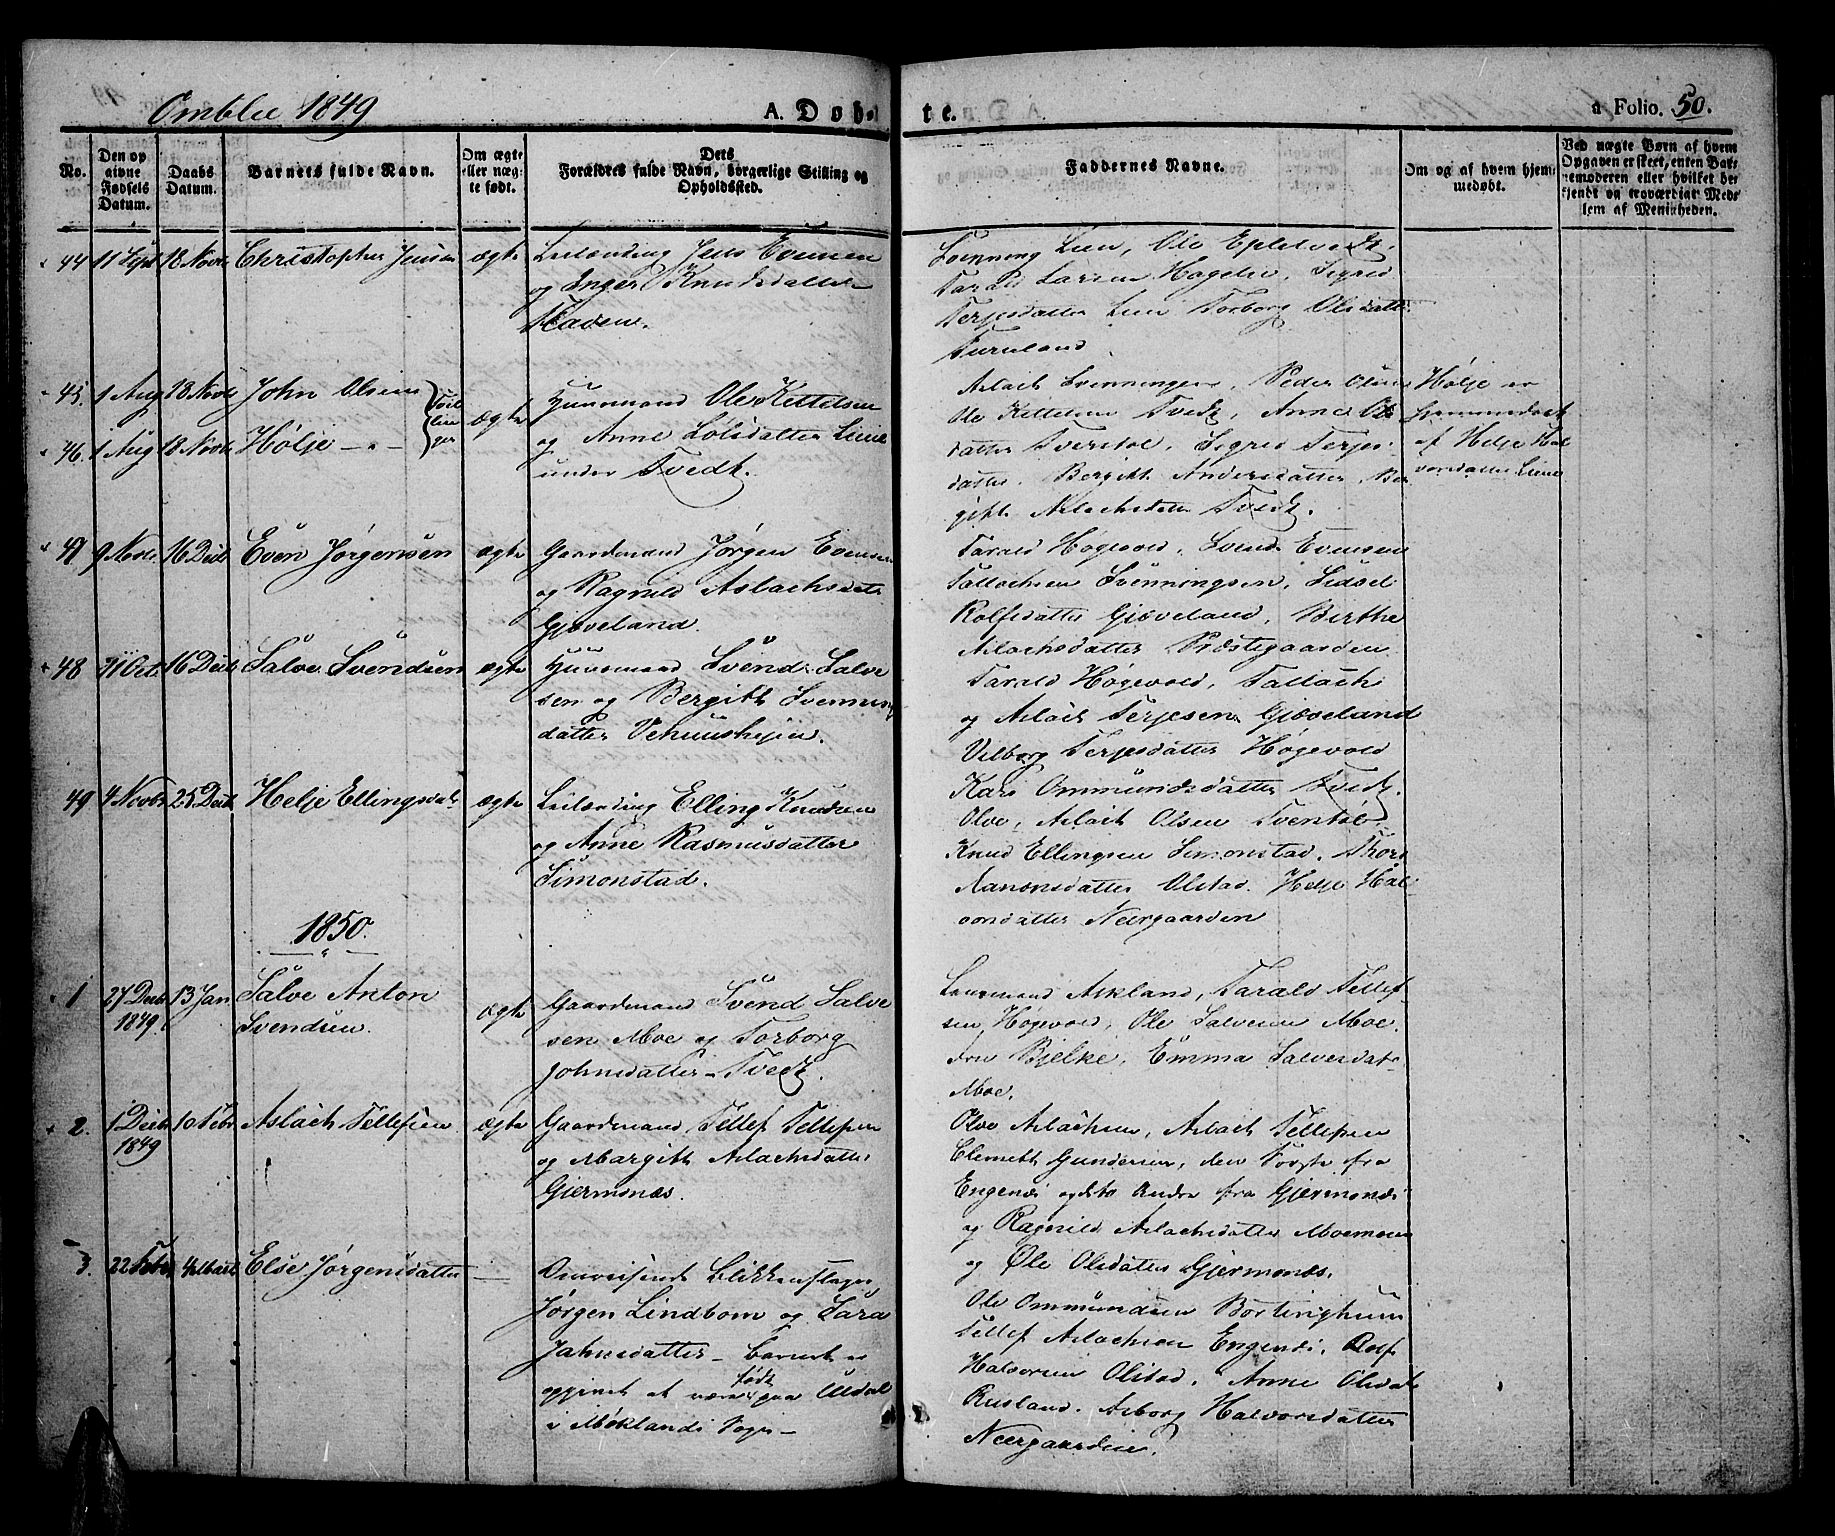 Omblie 1849
A. Døbte.
a Folio. 50.
No.
Den opgivne Fødsels Datum.
Daabs Datum.
Barnets fulde Navn.
Om ægte eller nægte født.
Dets Forældres fulde Navn, borgerlige Stilling og Opholdssted.
Faddernes Navne.
Om og af hvem hjemmedøbt.
44 11 18 Novb Christopher Jensen ægte
Leilænding Jens Evensen
og Inger Knudsdatter
Svenning Lien, Ole Epletvedt
Tarald Larsen Hageli, Sigrid
Terjesdatter Lien Torborg Olsdatter
45. 1 Aug 18 Novb John Olsen
46. 1 Aug 18 Novb Hølje — " —
Tvillinger
ægte
Huusmand Ole Kettelsen
og Anne Lolsdatter Liene
under Tvedt.
Aslach Svenningsen, Peder Olsen
Ole Kettelsen Tvedt, Anne Ols
datter Tveitøl, Sigrid Terjes
datter, Bergith Andersdatter, Ber
gith Aslachsdatter Tvedt.
Hølje er
hjemmedøbt
af Helje Hal
vorsdatter Liene
47 9 Novb. 16 Decb Even Jørgensen ægte
Gaardmand Jørgen Evensen
og Ragnild Aslachsdatt
Gjøveland.
Tarald Høgevold, Svend Evensen
Tallachsen Svenningsen, Sidsel
Rolfsdatter Gjøveland, Birthe
Aslachsdatter Præstegaarden
48 31 Octb 16 Decb Salve Svendsen ægte
Huusmand Svend Salve
sen og Bergith Svennings
datter Vehuusheien.
Tarald Høgevold, Tallach
og Aslach Terjesen Gjøveland
Vilborg Terjesdatter Høgevold
Kari Ommundsdatter Tvedt.
49 4 Novbr 25 Decb Helje Ellingsdatr ægte
Leilænding Elling Knudsen
og Anne Rasmusdatter
Simonstad.
Olve, Aslach Olsen Tveitøl
Knud Ellingsen Simonstad, Thore
Aanonsdatter Olstad. Helje Hal
vorsdatter Neergaarden
1850.
1 27 Decb 1849. 13 Jan Salve Anton
Svendsen.
ægte
Gaardmand Svend Salve
sen Moe og Torborg
Johnsdatter Tvedt.
Lensmand Askland, Tarald Tellef
sen Høgevold, Ole Salvesen Moe.
Fru Bjelke, Emma Salvesdat
Moe.
2. 1 Decb 1849 10 Febr. Aslach Tellefsen ægte
Gaardmand Tellef Tellefsen
og Margith Aslachsdatter
Gjermonæs.
Olve Aslachsen, Aslach Tellefsen
Clemett Gundersen, den
Engenæs og dito Andre fra Gjermonæs
og Ragnild Aslachsdatter Moemoen
og Øle Olsdatter Gjermonæs.
3. 22 Febr 4 Marts Else Jørgensdatter —
Omreisende Blikkenslager
Jørgen Lindbom og Sara
Jahnsdatter — Barnet er
opgivet at være født paa Uldal
i Møklands Sogn —
Ole Ommundsen Bortinghuus
Tellef Aslachsen Engenæs, Rolf
Halvorsen Olstad, Anne Olsdat
Rusland. Asborg Halvorsdatter
Neergaarden.